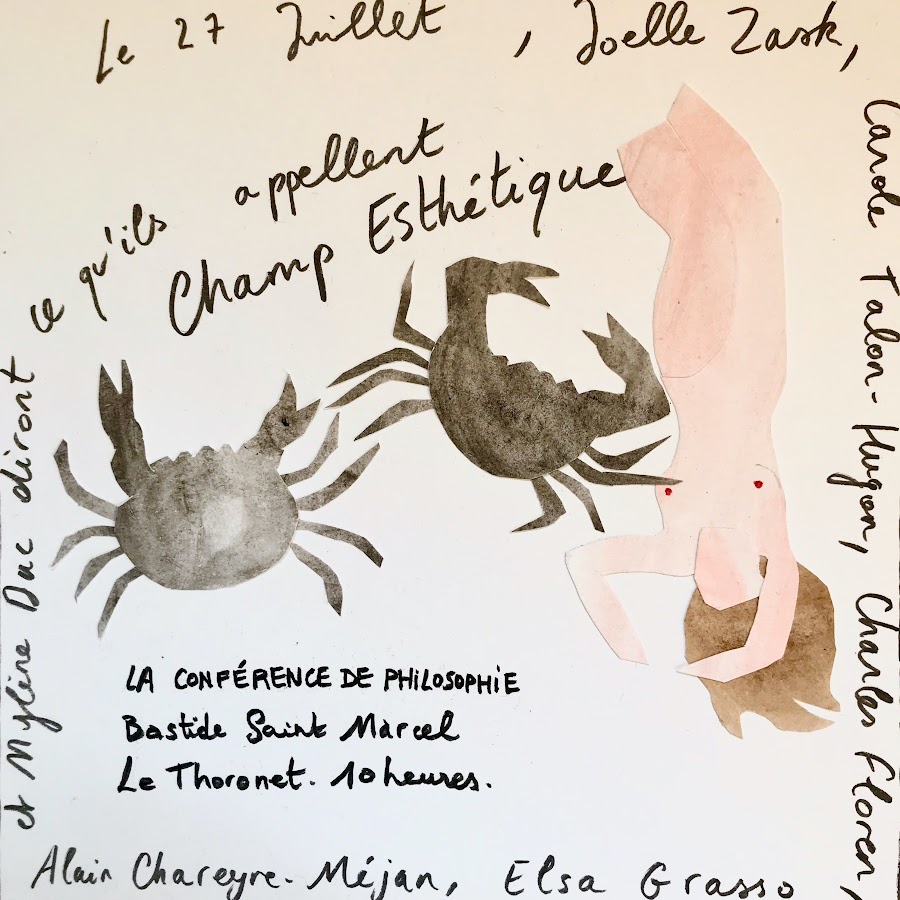 Le 27 Juillet, Joelle Zask,
Carole Talon-Hugon, Charles Floren,
Alain Chareyre-Méjan, Elsa Grasso
et Mylène Duc diront
ce qu'ils appellent
Champ Esthétique
LA CONFÉRENCE DE PHILOSOPHIE
Bastide Saint Marcel
Le Thoronet. 10 heures.